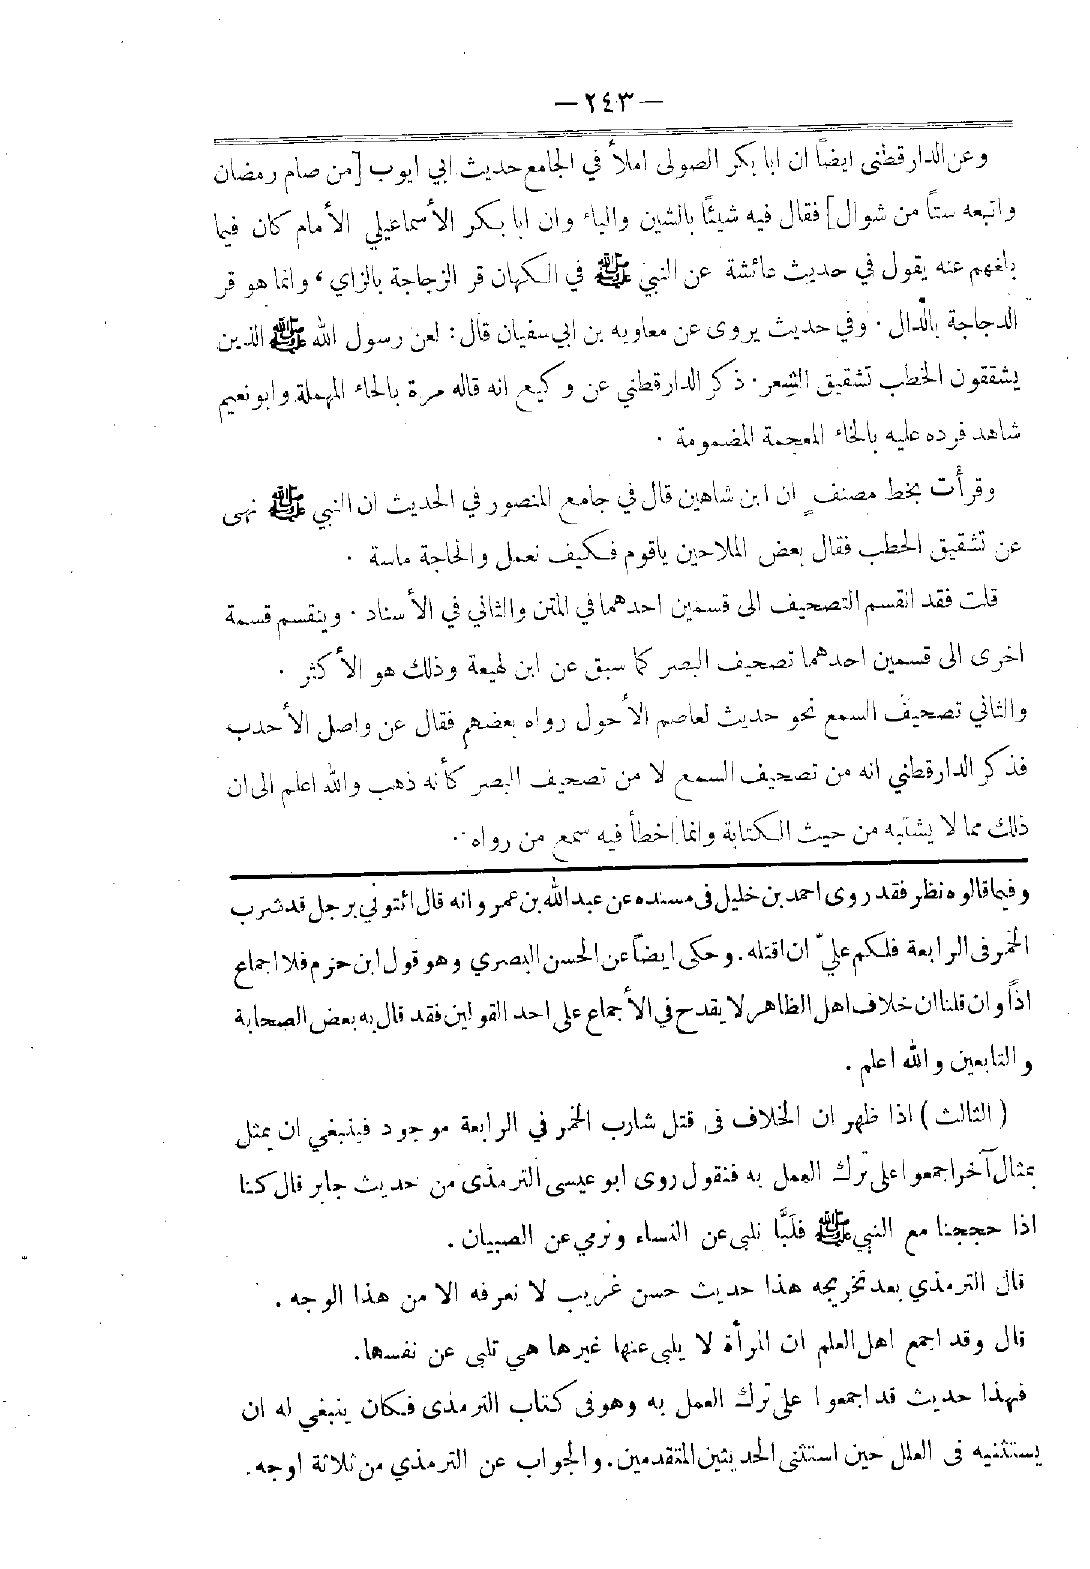 — ٢٤٣ —
وعن الدارقطنى ايضاً ان ابا بكر الصولى املأ في الجامع حديث ابي ايوب [من صام رمضان
واتبعه ستاً من شوال] فقال فيه شيئاً بالشين والياء وان ابا بكر الأسماعيلي الأمام كان فيما
بلغهم عنه يقول في حديث عائشة عن النبي ﷺ في الكهان قر الزجاجة بالزاي ، وانما هو قر
الدجاجة بالدال . وفي حديث يروى عن معاويه بن ابي سفيان قال : لعن رسول الله ﷺ الذين
يشققون الخطب تشقيق الشعر . ذكر الدارقطني عن وكيع انه قاله مرة بالحاء المهملة وابو نعيم
شاهد فرده عليه بالخاء المعجمة المضمومة .
وقرأت بخط مصنف ان ابن شاهين قال في جامع المنصور في الحديث ان النبي ﷺ نهى
عن تشقيق الحطب فقال بعض الملاحين ياقوم فكيف نعمل والحاجة ماسة .
قلت فقد انقسم التصحيف الى قسمين احدهما في المتن والثاني في الأسناد . وينقسم قسمة
اخرى الى قسمين احدهما تصحيف البصر كما سبق عن ابن لهيعة وذلك هو الأكثر .
والثاني تصحيف السمع نحو حديث لعاصم الأحول رواه بعضهم فقال عن واصل الأحدب
فذكر الدارقطني انه من تصحيف السمع لا من تصحيف البصر كأنه ذهب والله اعلم الى ان
ذلك مما لا يشتبه من حيث الكتابة وانما اخطأ فيه سمع من رواه .
وفيما قالوه نظر فقد روى احمد بن خليل فى مسنده عن عبدالله بن عمرو انه قال ائتوني برجل قد شرب
الخمر فى الرابعة فلكم عليّ ان اقتله . وحكى ايضاً عن الحسن البصري وهو قول ابن حزم فلا اجماع
اذاً وان قلنا ان خلاف اهل الظاهر لا يقدح في الأجماع على احد القولين فقد قال به بعض الصحابة
والتابعين والله اعلم .
( الثالث ) اذا ظهر ان الخلاف فى قتل شارب الخمر في الرابعة موجود فينبغي ان يمثل
بمثال آخر اجمعوا على ترك العمل به فنقول روى ابو عيسى الترمذى من حديث جابر قال كنا
اذا حججنا مع النبي ﷺ فلبَّا نلبى عن النساء ونرمي عن الصبيان .
قال الترمذي بعد تخريجه هذا حديث حسن غريب لا نعرفه الا من هذا الوجه .
قال وقد اجمع اهل العلم ان المرأة لا يلبى عنها غيرها هي تلبى عن نفسها .
فهذا حديث قد اجمعوا على ترك العمل به وهو فى كتاب الترمذى فكان ينبغي له ان
يستثنيه فى العلل حين استثنى الحديثين المتقدمين . والجواب عن الترمذي من ثلاثة اوجه .